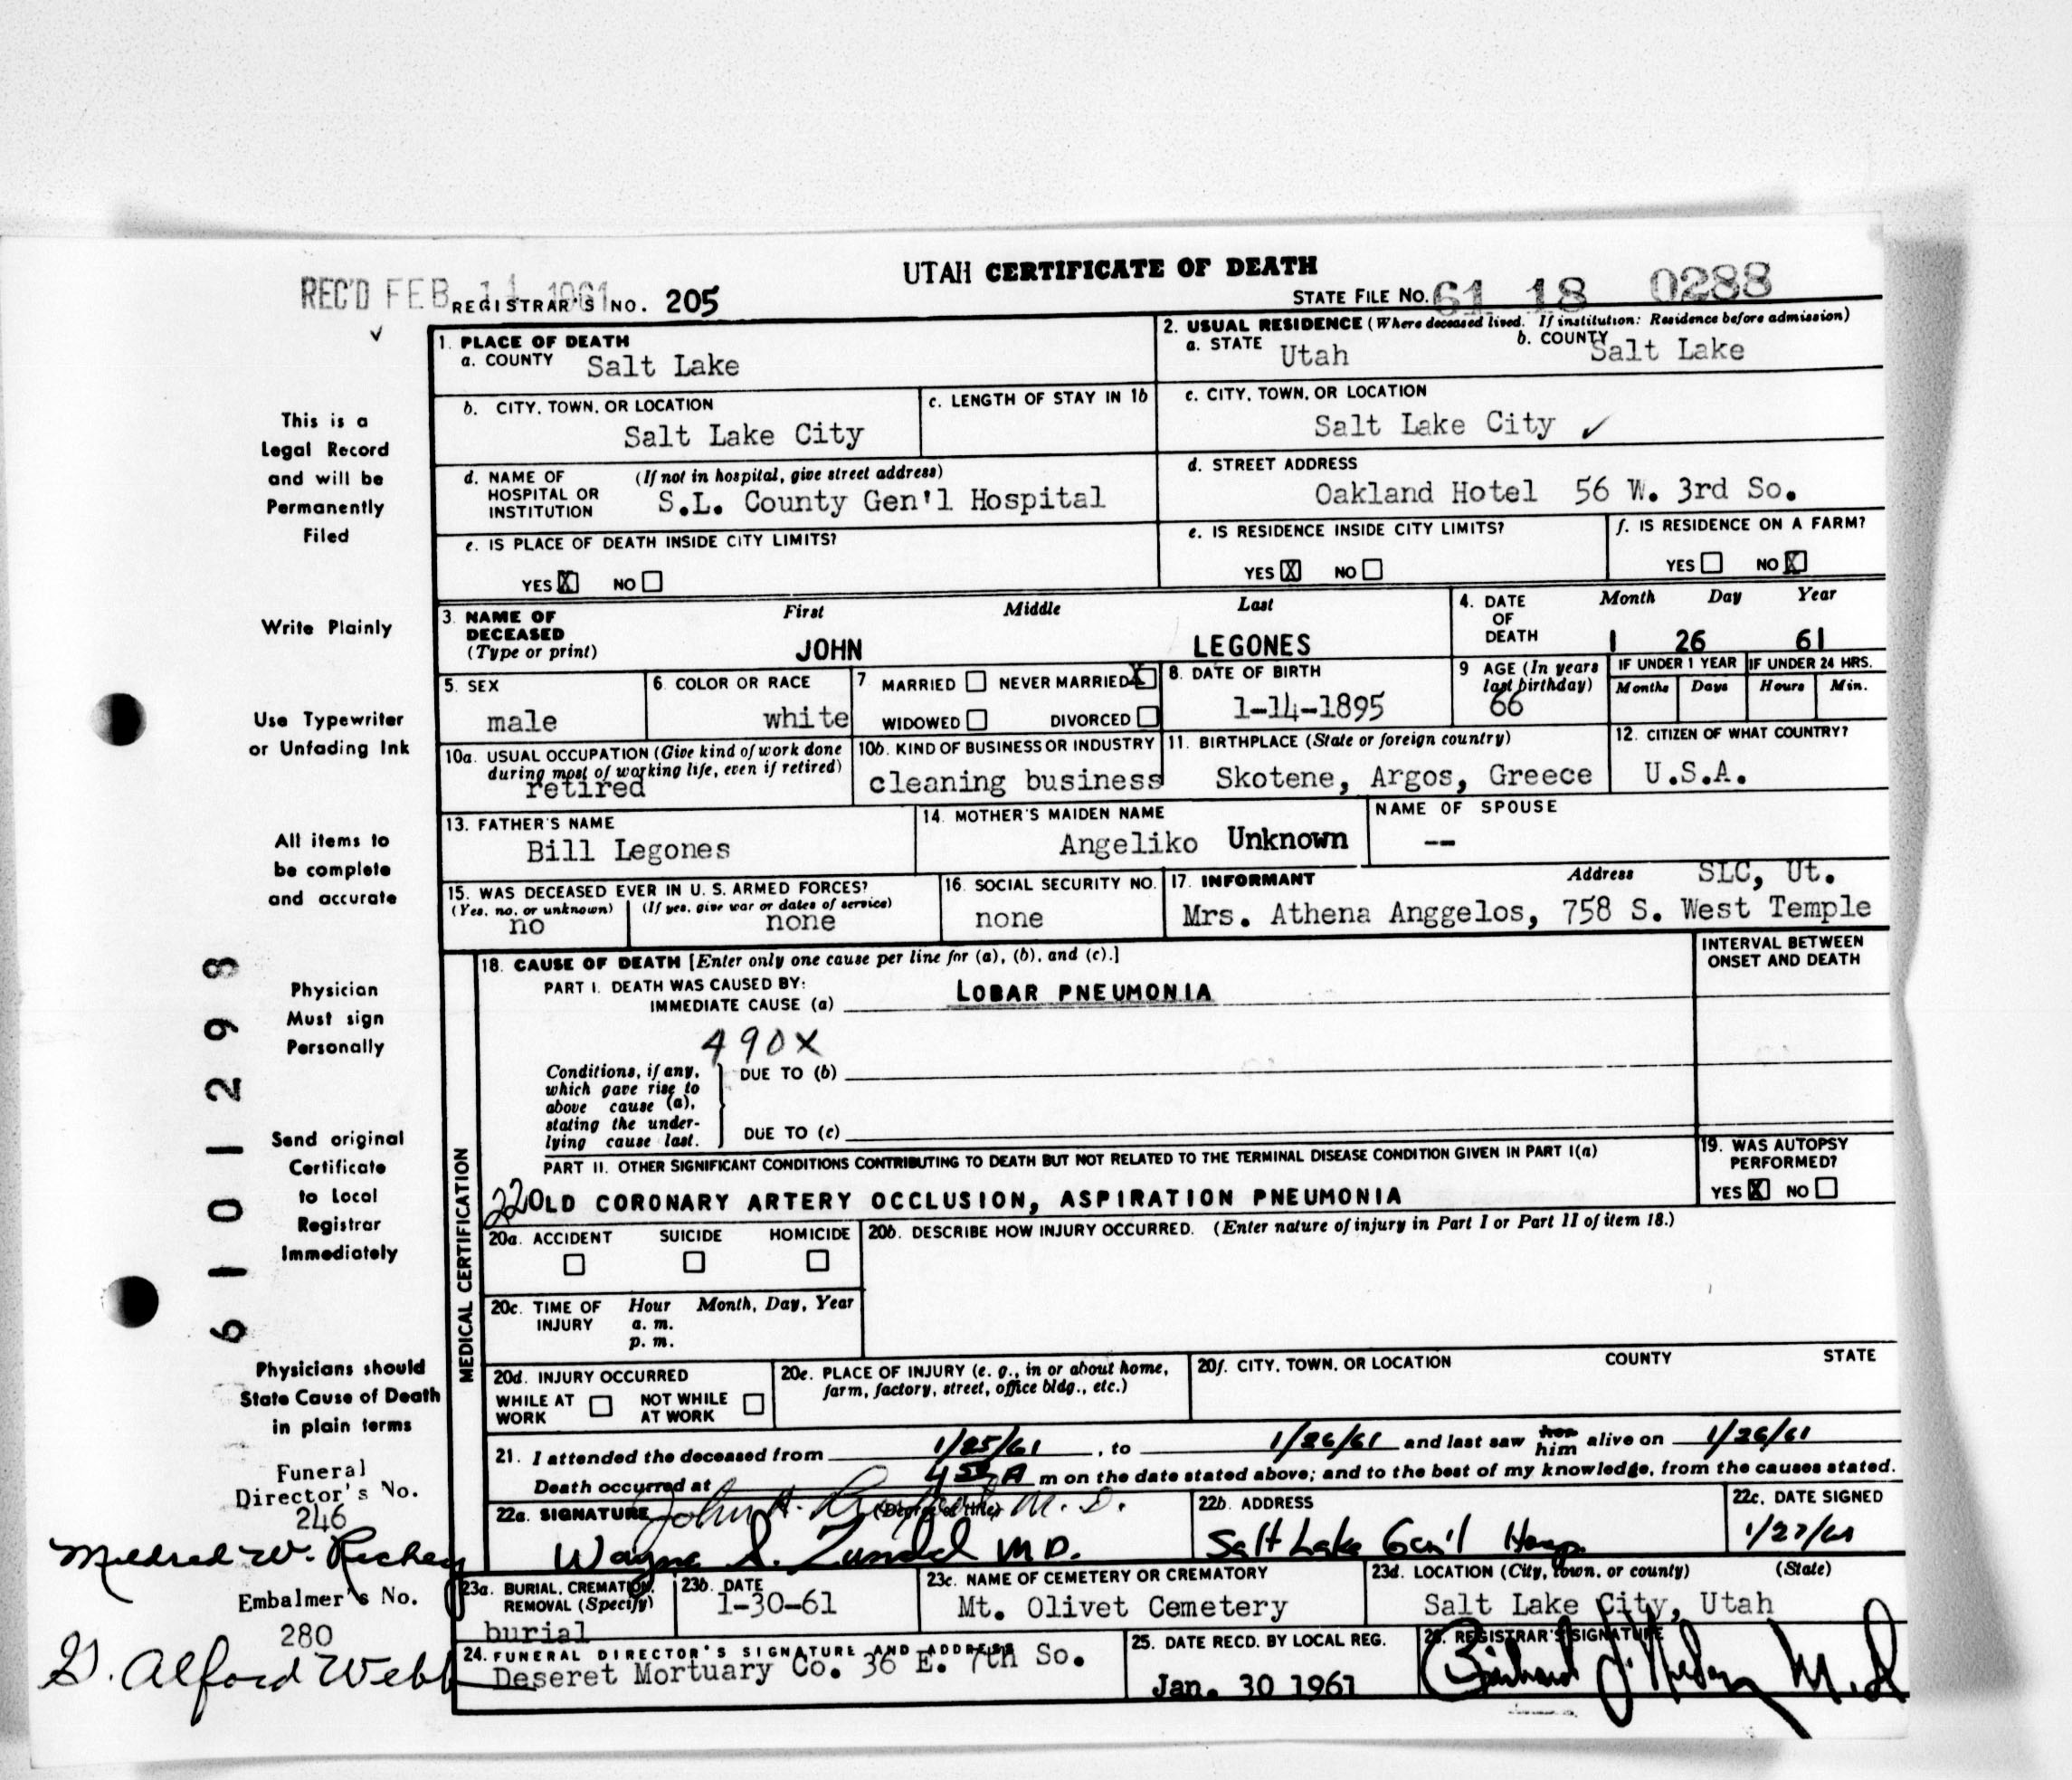 UTAH CERTIFICATE OF DEATH
REC'D FEB 14 1961 REGISTRAR'S NO. 205
STATE FILE NO. 61 18 0288
1. PLACE OF DEATH
a. COUNTY Salt Lake
2. USUAL RESIDENCE (Where deceased lived. If institution: Residence before admission)
a. STATE Utah b. COUNTY Salt Lake
b. CITY, TOWN, OR LOCATION
Salt Lake City
c. LENGTH OF STAY IN 1b
c. CITY, TOWN, OR LOCATION
Salt Lake City ✓
d. NAME OF HOSPITAL OR INSTITUTION (If not in hospital, give street address)
S.L. County Gen'l Hospital
d. STREET ADDRESS
Oakland Hotel 56 W. 3rd So.
e. IS PLACE OF DEATH INSIDE CITY LIMITS?
YES X NO
e. IS RESIDENCE INSIDE CITY LIMITS?
YES X NO
f. IS RESIDENCE ON A FARM?
YES NO X
3. NAME OF DECEASED (Type or print)
First Middle Last
JOHN LEGONES
4. DATE OF DEATH Month Day Year
1 26 61
5. SEX
male
6. COLOR OR RACE
white
7 MARRIED NEVER MARRIED X
WIDOWED DIVORCED
8. DATE OF BIRTH
1-14-1895
9 AGE (In years last birthday)
66
IF UNDER 1 YEAR IF UNDER 24 HRS.
Months Days Hours Min.
10a. USUAL OCCUPATION (Give kind of work done during most of working life, even if retired)
retired
10b. KIND OF BUSINESS OR INDUSTRY
cleaning business
11. BIRTHPLACE (State or foreign country)
Skotene, Argos, Greece
12. CITIZEN OF WHAT COUNTRY?
U.S.A.
13. FATHER'S NAME
Bill Legones
14. MOTHER'S MAIDEN NAME
Angeliko Unknown
NAME OF SPOUSE
--
15. WAS DECEASED EVER IN U. S. ARMED FORCES?
(Yes, no, or unknown) (If yes, give war or dates of service)
no none
16. SOCIAL SECURITY NO.
none
17. INFORMANT Address SLC, Ut.
Mrs. Athena Anggelos, 758 S. West Temple
MEDICAL CERTIFICATION
18. CAUSE OF DEATH [Enter only one cause per line for (a), (b), and (c).]
INTERVAL BETWEEN ONSET AND DEATH
PART I. DEATH WAS CAUSED BY:
IMMEDIATE CAUSE (a) LOBAR PNEUMONIA
490X
Conditions, if any, which gave rise to above cause (a), stating the underlying cause last.
DUE TO (b)
DUE TO (c)
PART II. OTHER SIGNIFICANT CONDITIONS CONTRIBUTING TO DEATH BUT NOT RELATED TO THE TERMINAL DISEASE CONDITION GIVEN IN PART I(a)
22 OLD CORONARY ARTERY OCCLUSION, ASPIRATION PNEUMONIA
19. WAS AUTOPSY PERFORMED?
YES X NO
20a. ACCIDENT SUICIDE HOMICIDE
20b. DESCRIBE HOW INJURY OCCURRED. (Enter nature of injury in Part I or Part II of item 18.)
20c. TIME OF INJURY Hour Month, Day, Year
a. m.
p. m.
20d. INJURY OCCURRED
WHILE AT WORK NOT WHILE AT WORK
20e. PLACE OF INJURY (e. g., in or about home, farm, factory, street, office bldg., etc.)
20f. CITY, TOWN, OR LOCATION COUNTY STATE
21. I attended the deceased from 1/25/61, to 1/26/61 and last saw her him alive on 1/26/61
Death occurred at 4 50 A m on the date stated above; and to the best of my knowledge, from the causes stated.
22a. SIGNATURE John H. M. D. (Degree or title)
Wayne S. Zundel M D.
22b. ADDRESS
Salt Lake Gen'l Hosp.
22c. DATE SIGNED
1/27/61
23a. BURIAL, CREMATION, REMOVAL (Specify)
burial
23b. DATE
1-30-61
23c. NAME OF CEMETERY OR CREMATORY
Mt. Olivet Cemetery
23d. LOCATION (City, town, or county) (State)
Salt Lake City, Utah
24. FUNERAL DIRECTOR'S SIGNATURE AND ADDRESS
Deseret Mortuary Co. 36 E. 7th So.
25. DATE RECD. BY LOCAL REG.
Jan. 30 1961
26. REGISTRAR'S SIGNATURE
M.D
This is a
Legal Record
and will be
Permanently
Filed
Write Plainly
Use Typewriter
or Unfading Ink
All items to
be complete
and accurate
Physician
Must sign
Personally
Send original
Certificate
to Local
Registrar
Immediately
Physicians should
State Cause of Death
in plain terms
Funeral
Director's No.
246
Mildred W. Richey
Embalmer's No.
280
G. Alford Webb
6101298